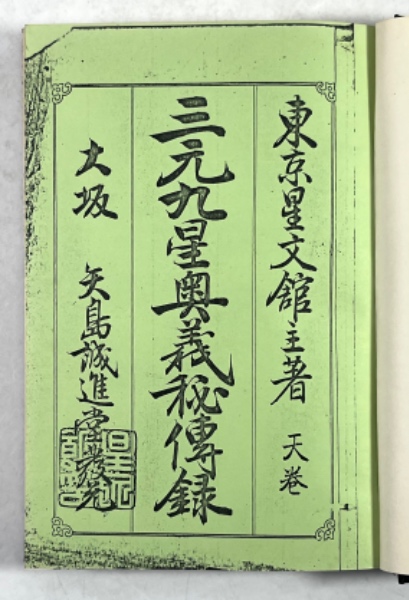 東京星文館主著 天巻
三元九星奥義秘傳録
大坂 矢島誠進堂發兌